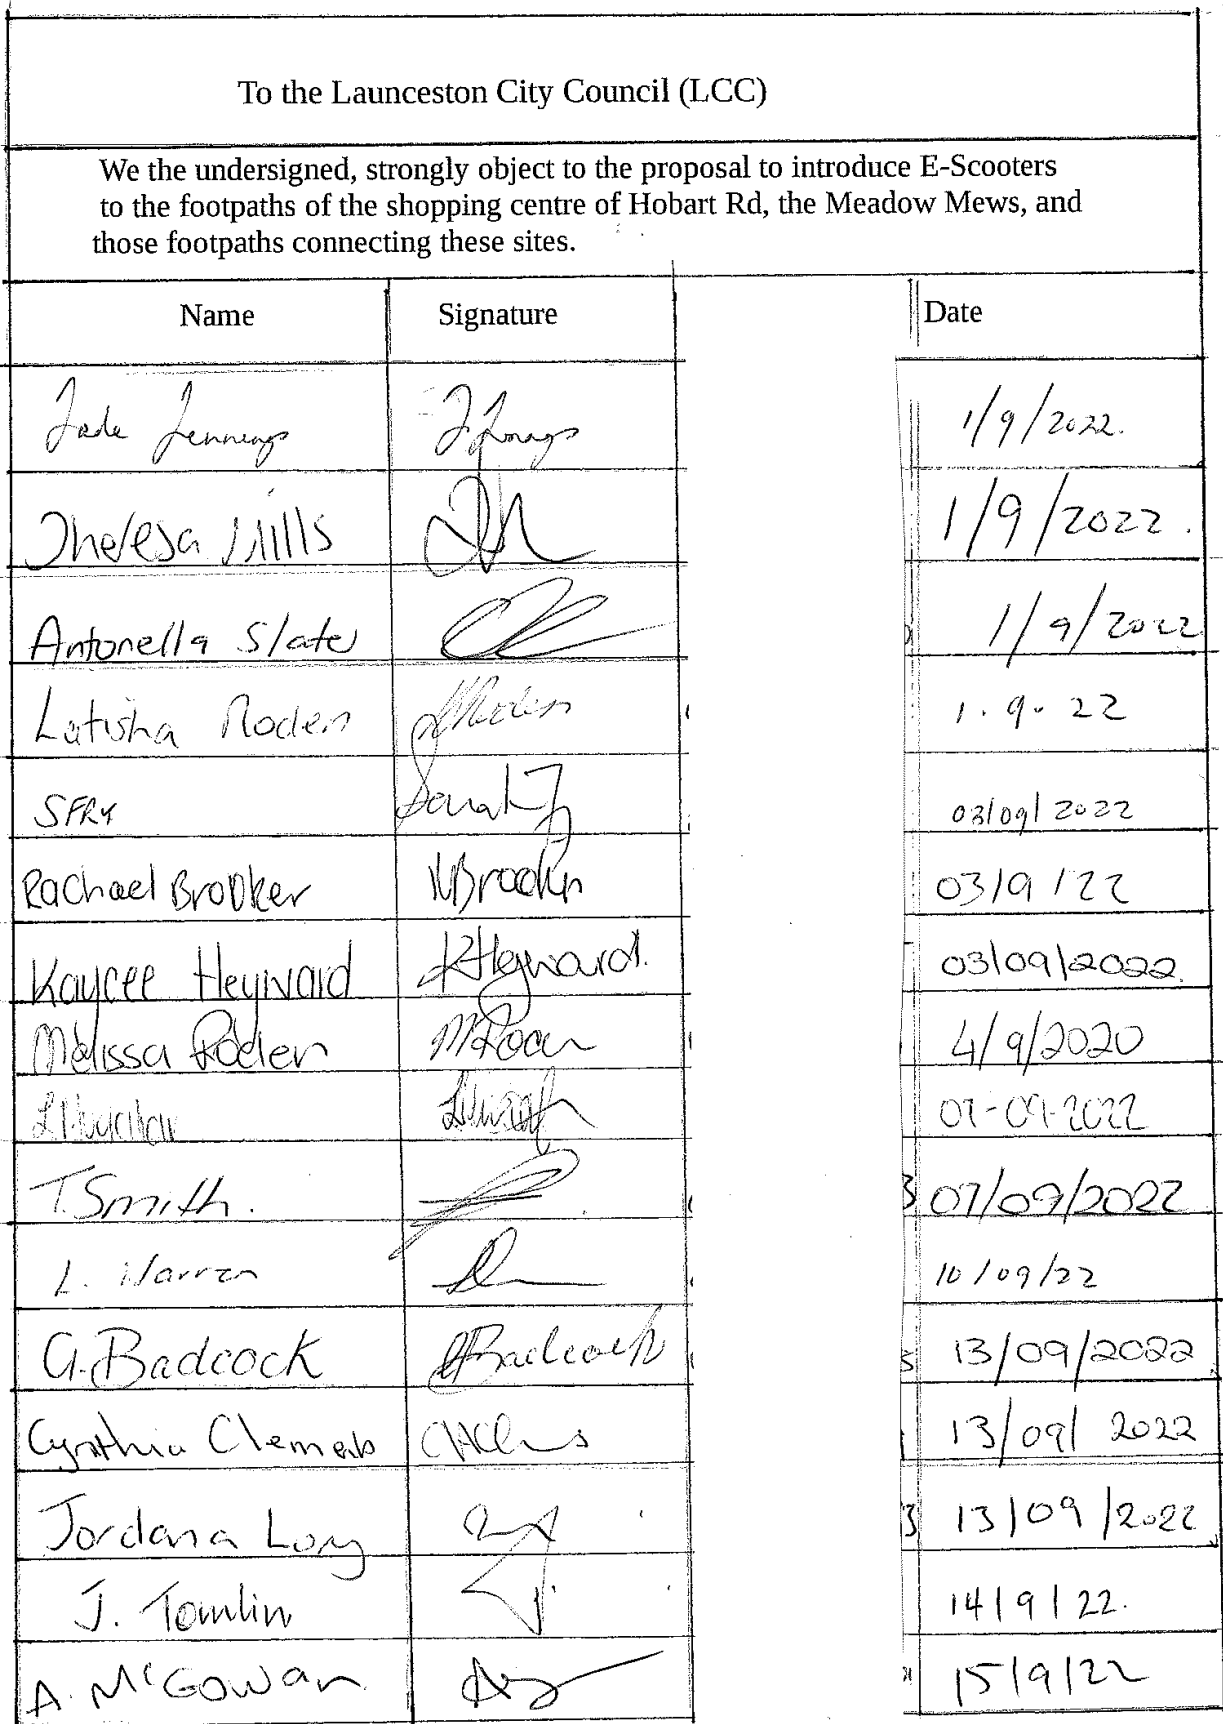 To the Launceston City Council (LCC)
We the undersigned, strongly object to the proposal to introduce E-Scooters
to the footpaths of the shopping centre of Hobart Rd, the Meadow Mews, and
those footpaths connecting these sites.
Name Signature Date
Jade Jennings 1/9/2022.
Theresa Mills 1/9/2022.
Antonella Slater 1/9/2022
Latisha Roden LRoden 1.9.22
SFRY 03/09/2022
Rachael Brooker RBrooker 03/9/22
Kaycee Heyward KHeyward. 03/09/2022
Melissa Roden MRoden 4/9/2020
07-09-2022
T. Smith. 07/09/2022
L. Warren 10/09/22
G. Badcock GBadcock 13/09/2022
Cynthia Clements 13/09/2022
Jordana Long 13/09/2022
J. Tomlin 14/9/22.
A. McGowan 15/9/22